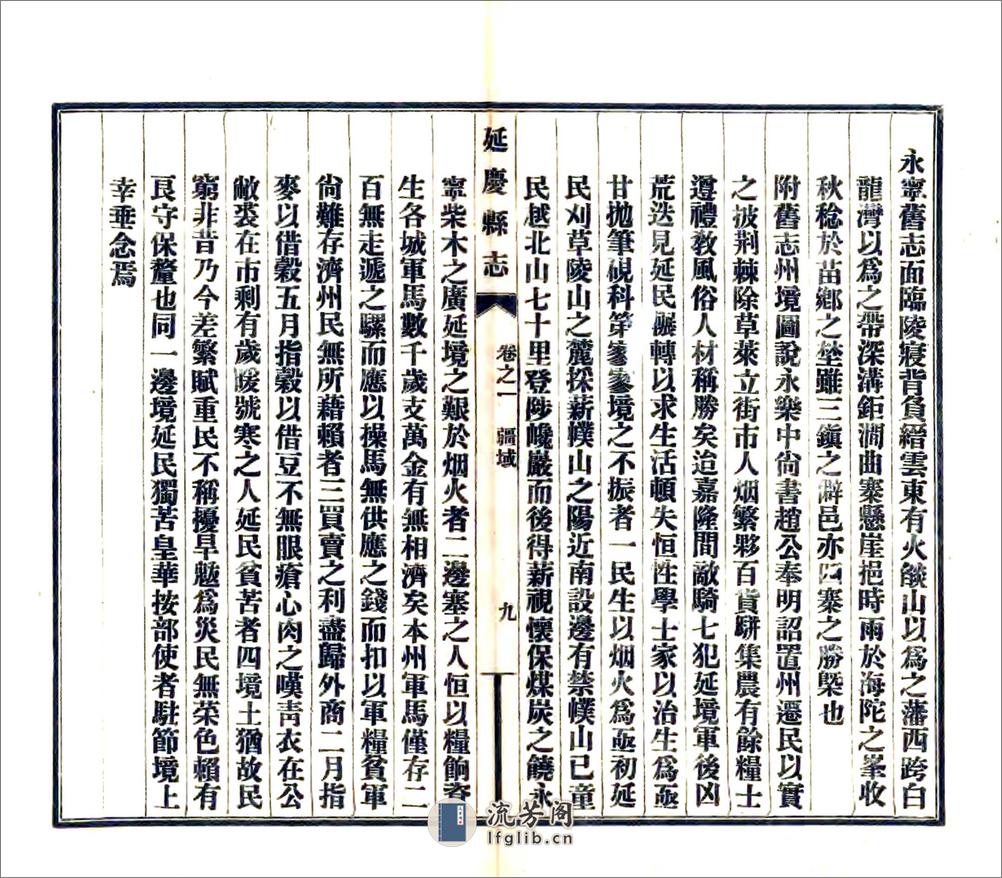 永寧舊志面臨陵寢背負縉雲東有火燄山以爲之藩西跨白
龍灣以爲之帶深溝鉅澗曲寨懸崖挹時雨於海陀之峯收
秋稔於苗鄉之埜雖三鎮之僻邑亦四寨之勝槩也
附舊志州境圖說永樂中尚書趙公奉明詔置州遷民以實
之披荆棘除草萊立街市人烟繁夥百貨駢集農有餘糧士
遵禮敎風俗人材稱勝矣迨嘉隆間敵騎七犯延境軍後凶
荒迭見延民輾轉以求生活頓失恒性學士家以治生爲亟
甘拋筆硯科第寥寥境之不振者一民生以烟火爲亟初延
民刈草陵山之麓採薪幞山之陽近南設邊有禁幞山已童
民越北山七十里登陟巉巖而後得薪視懷保煤炭之饒永
延慶縣志
卷之一 疆域
九
寧柴木之廣延境之艱於烟火者二邊塞之人恒以糧餉資
生各城軍馬數千歲支萬金有無相濟矣本州軍馬僅存二
百無走遞之騾而應以操馬無供應之錢而扣以軍糧貧軍
尚難存濟州民無所藉賴者三買賣之利盡歸外商二月指
麥以借穀五月指穀以借豆不無眼瘡心肉之嘆靑衣在公
敝裘在市剩有歲暖號寒之人延民貧苦者四境土猶故民
窮非昔乃今差繁賦重民不稱擾旱魃爲災民無荣色賴有
良守保釐也同一邊境延民獨苦皇華按部使者駐節境上
幸垂念焉
流芳阁
lfglib.cn